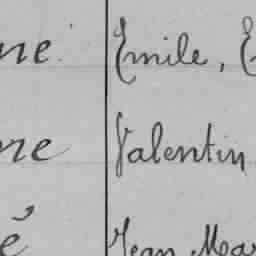 ne Émile,
ne Valentin
é Jean Mar